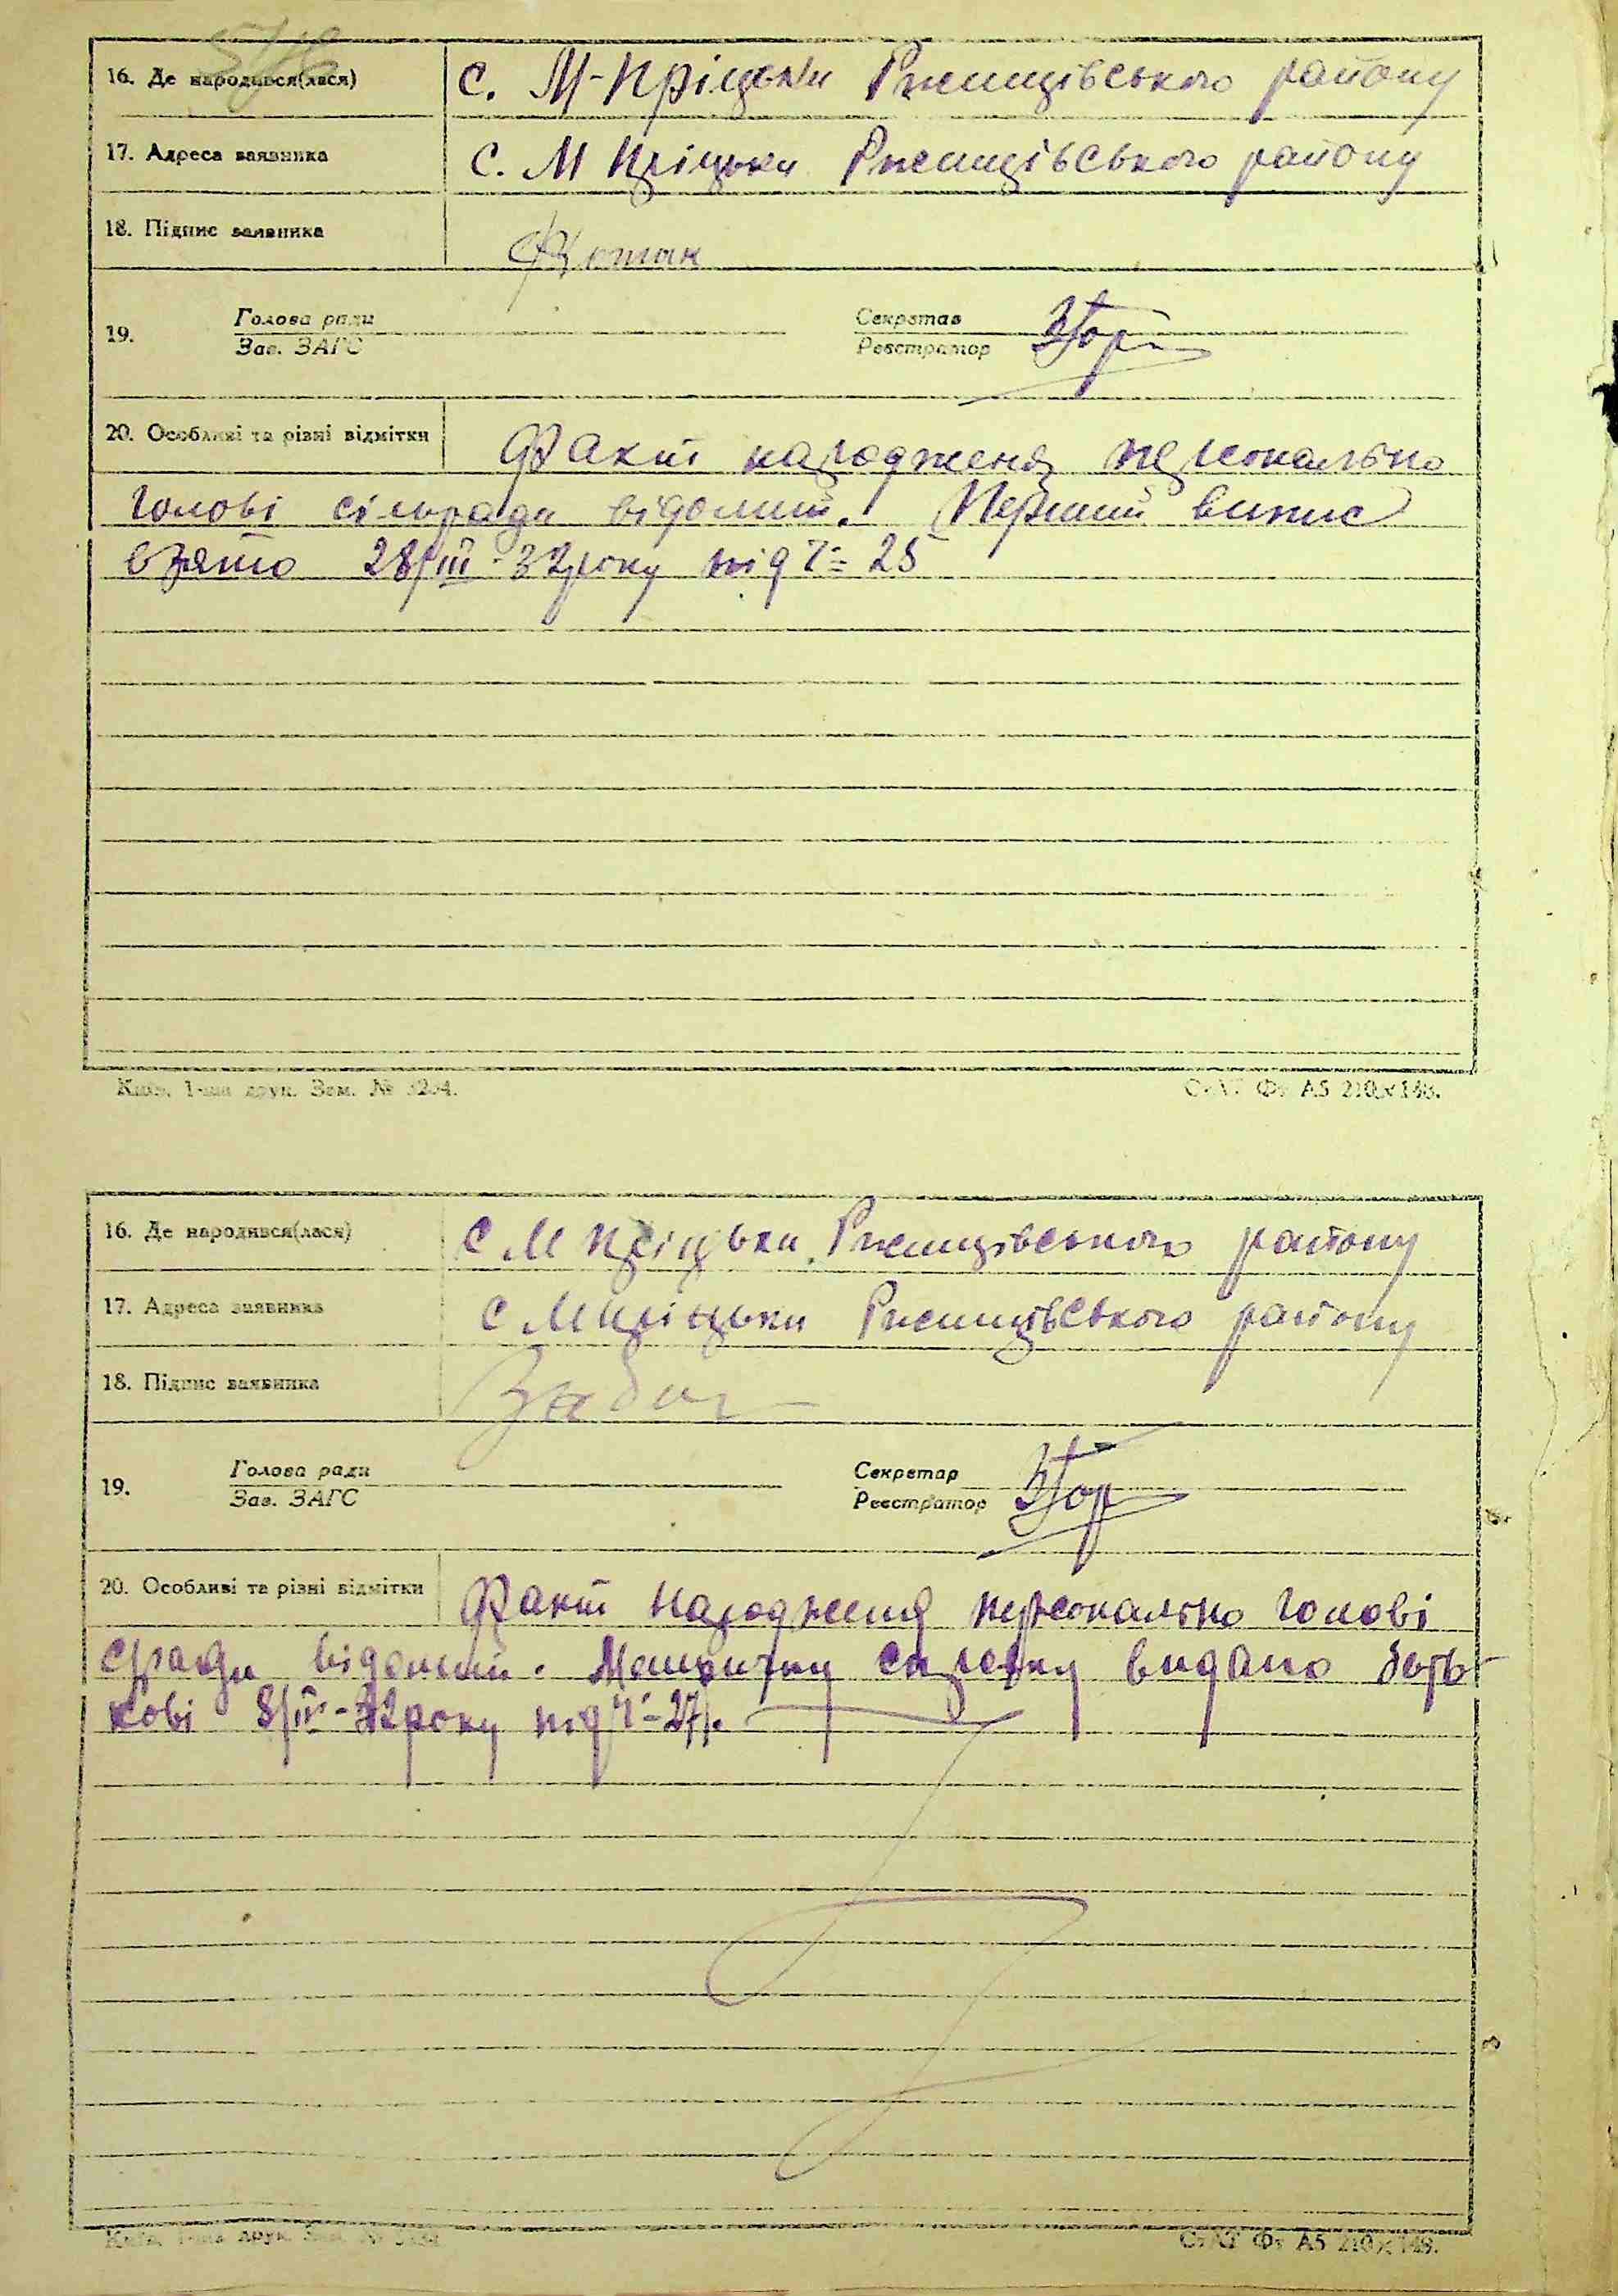 16. Де народився(лася) с. М-Пріцьки Ржищівського району
17. Адреса заявника с. М Пріцьки Ржищівського району
18. Підпис заявника
19. Голова ради Секретар
Зав. ЗАГС Реєстратор
20. Особливі та різні відмітки Факт народженя персонально
голові сільради відомий. Перший випис
взято 28/III-32 року під Ч= 25
Київ, 1-ша друк. Зам. №
СтАТ Фт А5 210×148.
16. Де народився(лася) с М Пріцьки Ржищівського району
17. Адреса заявника с М Пріцьки Ржищівського району
18. Підпис заявника
19. Голова ради Секретар
Зав. ЗАГС Реєстратор
20. Особливі та різні відмітки Факт народженя персонально голові
с/ради відомий. видано бать-
кові 8/IV-32 року під Ч-27.
Київ, 1-ша друк. Зам. №
СтАТ Фт А5 210×148.